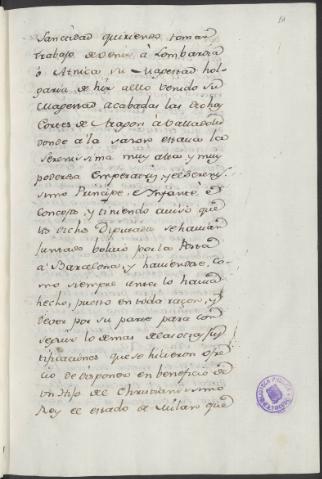 Sanctidad quiriendo tomar
trabajo de venir à Lombardia
ò Atnica, su Magestad hol-
garia de hir a ello venido su
Magestad acabadas las dichas
Cortes de Aragon à Valladolid
donde a la sazon estava la
serenissima muy alta y muy
poderosa Emperatriz, y el Serenis-
simo Principe, è Infante
con esto, y tiniendo aviso que
los dichos Diputados se havian
juntado bolvio por la Posta
à Barcelona, y haviendose, co-
mo siempre antes lo havia
hecho, puesto en toda razon, y
dever por su parte para con-
seguir lo demas de las otras jus-
tificaciones que se hicieron ofre-
cio de disponer en beneficio de
un Hijo del Christianissimo
Rey el estado de Milan que